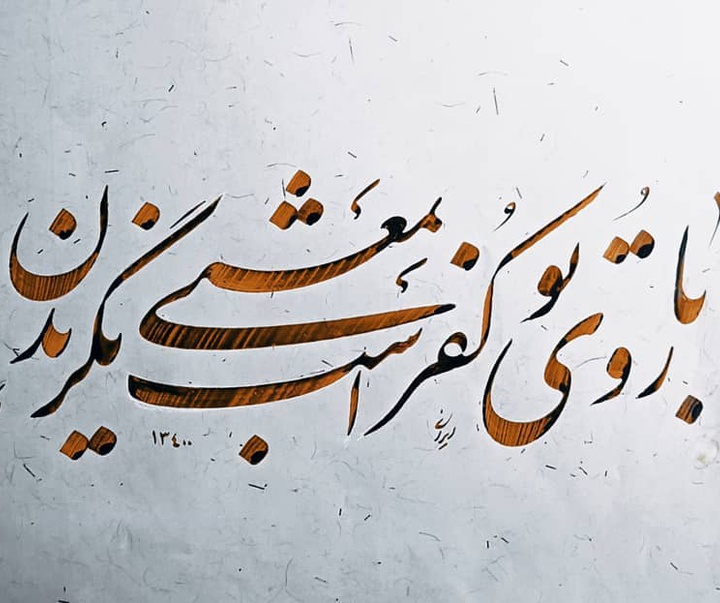 با روی تو کفر است بمعنی نگریدن